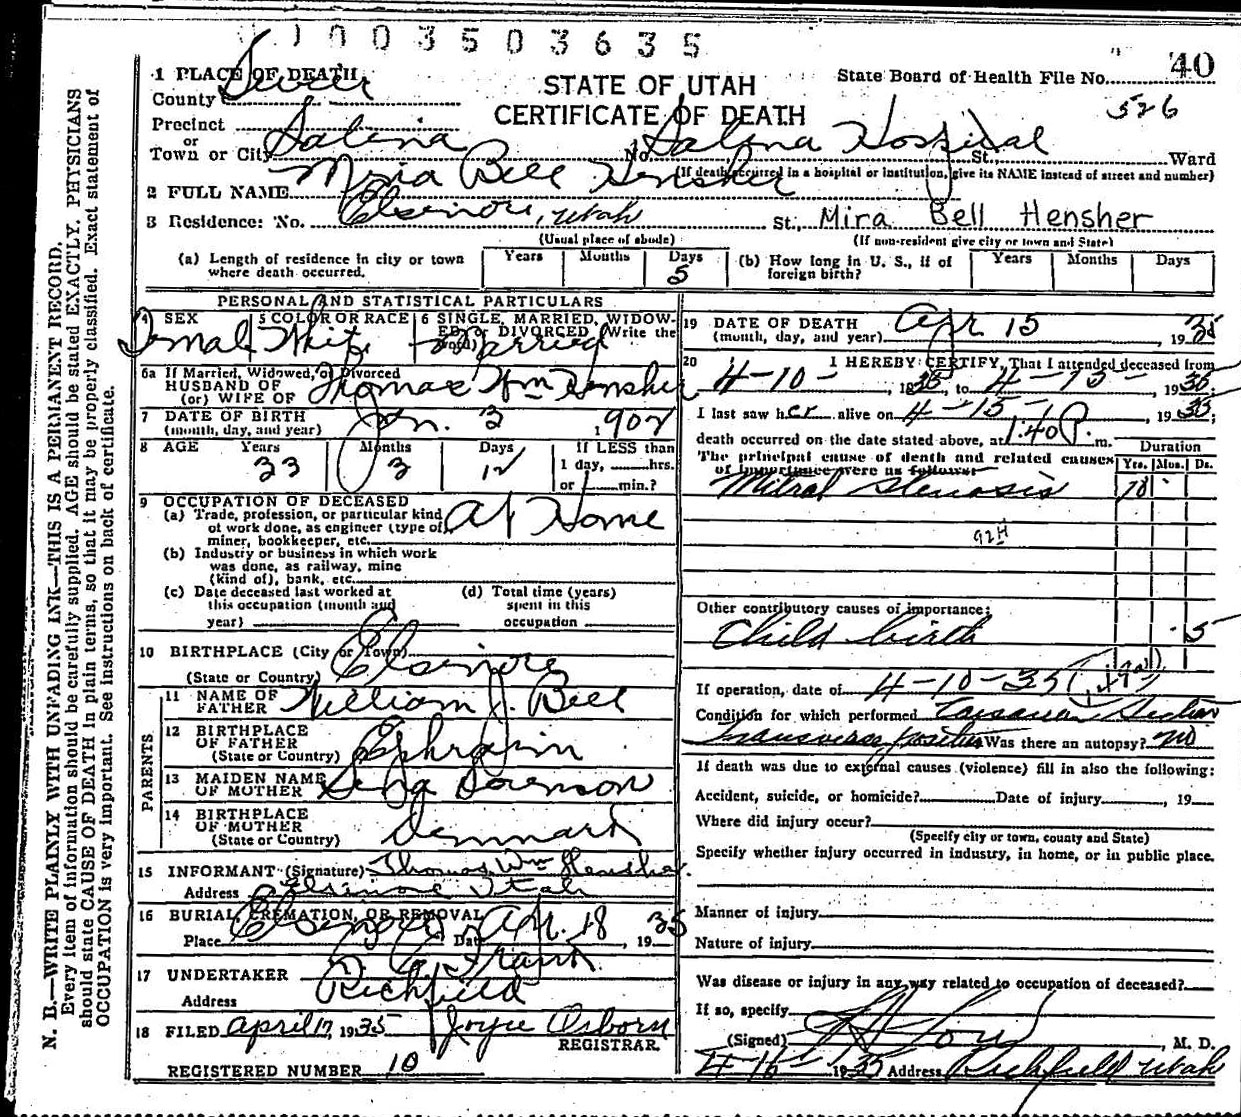 0 0 3 5 0 3 6 3 5
40
1 PLACE OF DEATH
County Sevier
STATE OF UTAH
CERTIFICATE OF DEATH
State Board of Health File No.
526
Precinct
or
Town or City Salina
No. Salina Hospital St., Ward
(If death occurred in a hospital or institution, give its NAME instead of street and number)
2 FULL NAME Mira Bell Hensher
3 Residence: No. Elsinore, Utah St., Mira Bell Hensher
(Usual place of abode)
(If non-resident give city or town and State)
(a) Length of residence in city or town where death occurred.
Years Months Days 5
(b) How long in U. S., if of foreign birth?
Years Months Days
PERSONAL AND STATISTICAL PARTICULARS
4 SEX Female
5 COLOR OR RACE White
6 SINGLE, MARRIED, WIDOWED, or DIVORCED (Write the word) Married
6a If Married, Widowed, or Divorced
HUSBAND OF
(or) WIFE OF Thomas Wm Hensher
7 DATE OF BIRTH
(month, day, and year) Jan. 3 1902
8 AGE Years 33 Months 3 Days 12
If LESS than
1 day, hrs.
or min.?
9 OCCUPATION OF DECEASED
(a) Trade, profession, or particular kind of work done, as engineer (type of) miner, bookkeeper, etc. At Home
(b) Industry or business in which work was done, as railway, mine (kind of), bank, etc.
(c) Date deceased last worked at this occupation (month and year)
(d) Total time (years) spent in this occupation
10 BIRTHPLACE (City or Town) Elsinore
(State or Country)
PARENTS
11 NAME OF FATHER William J. Bell
12 BIRTHPLACE OF FATHER
(State or Country) Ephraim
13 MAIDEN NAME OF MOTHER Sena Sorenson
14 BIRTHPLACE OF MOTHER
(State or Country) Denmark
15 INFORMANT (Signature) Thomas Wm Hensher
Address Elsinore Utah
16 BURIAL, CREMATION, OR REMOVAL
Place Elsinore Date Apr. 18, 1935
17 UNDERTAKER
Address Richfield
18 FILED April 17, 1935 Joyce Osborn
REGISTRAR.
REGISTERED NUMBER 10
19 DATE OF DEATH
(month, day, and year) Apr 15, 1935
20 I HEREBY CERTIFY, That I attended deceased from
4-10-, 1935, to 4-15-, 1935.
I last saw her alive on 4-15-, 1935;
death occurred on the date stated above, at 1:40 P. m.
The principal cause of death and related causes of importance were as follows:
Duration
Yrs. Mos. Ds.
Mitral Stenosis
92H
Other contributory causes of importance:
Child birth 5
If operation, date of 4-10-35
Condition for which performed Caesarean Section
transverse position Was there an autopsy? no
If death was due to external causes (violence) fill in also the following:
Accident, suicide, or homicide? Date of injury , 19
Where did injury occur?
(Specify city or town, county and State)
Specify whether injury occurred in industry, in home, or in public place.
Manner of injury
Nature of injury
Was disease or injury in any way related to occupation of deceased?
If so, specify
(Signed) , M. D.
4-16- 1935 Address Richfield Utah
N. B.—WRITE PLAINLY WITH UNFADING INK—THIS IS A PERMANENT RECORD.
Every item of information should be carefully supplied. AGE should be stated EXACTLY. PHYSICIANS
should state CAUSE OF DEATH in plain terms, so that it may be properly classified. Exact statement of
OCCUPATION is very important. See instructions on back of certificate.